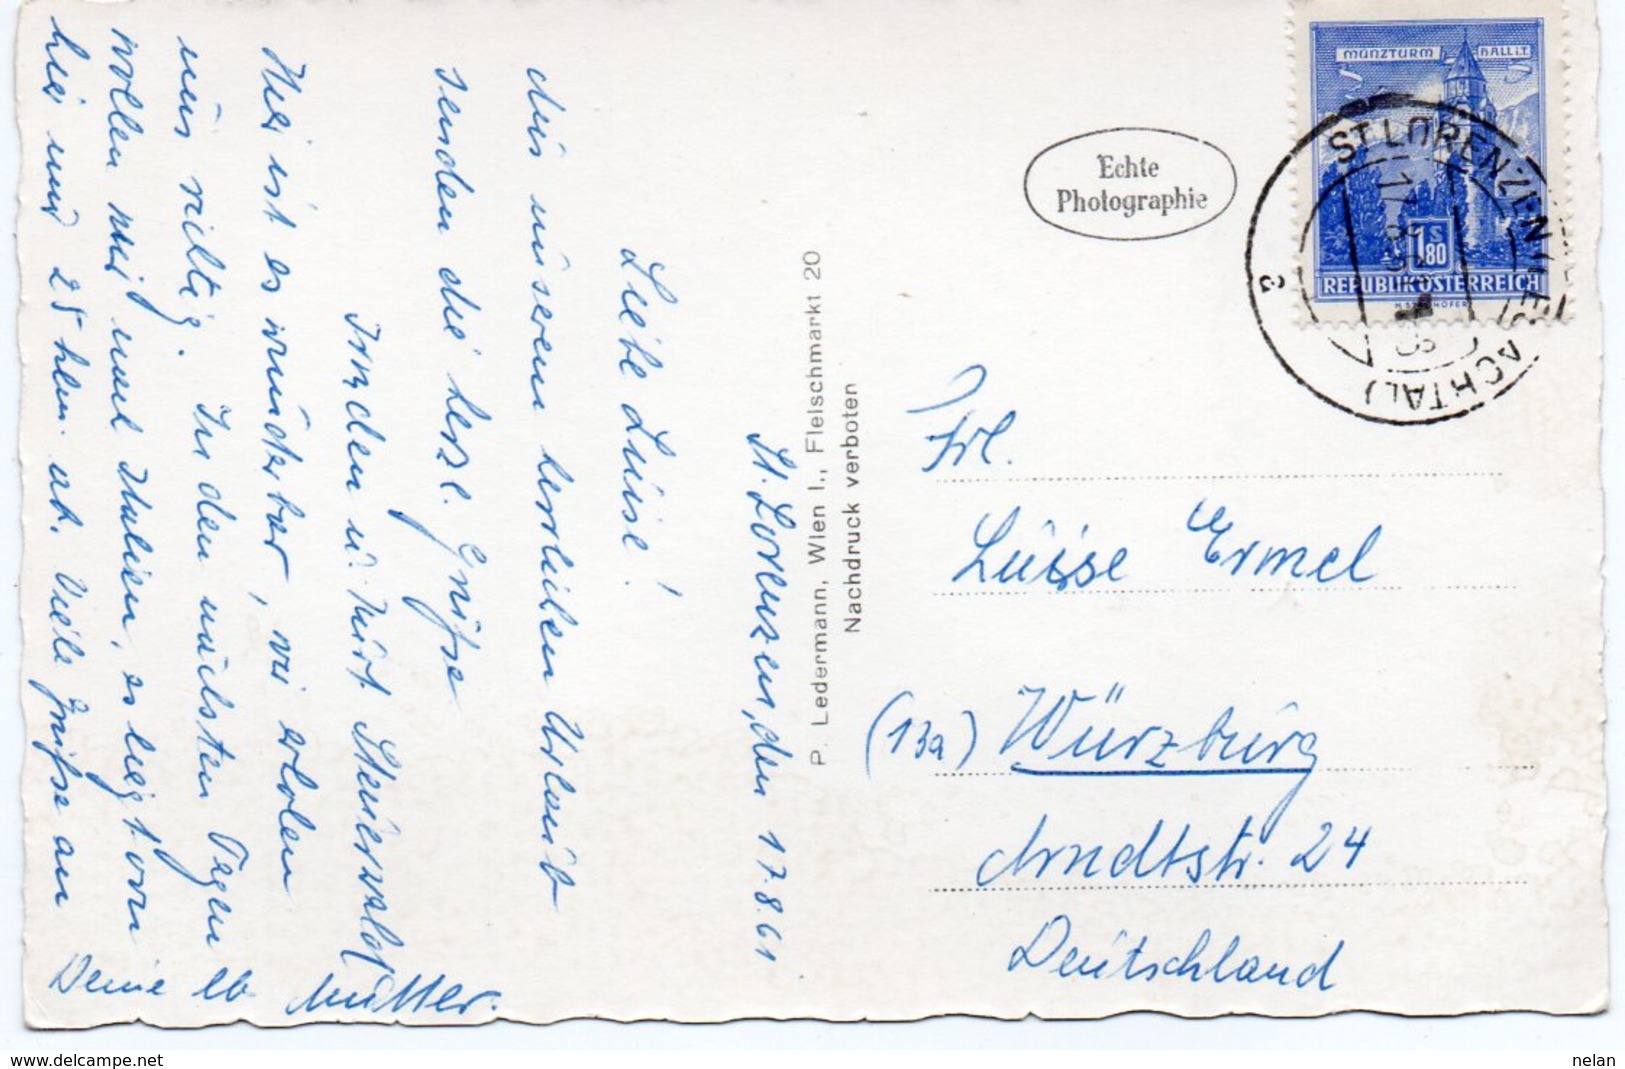 St. Lorenzen, den 17.8.61
Liebe Luise!
Aus unserem herrlichen Urlaub
senden die herzl. Grüße
u. Kurt
Hier ist es wunderbar, wir erholen
uns richtig. In den nächsten Tagen
wollen wir mal Italien, es liegt von
hier nur 25 klm. ab. Viele Grüße an
Deine lb Mutter.
P. Ledermann, Wien I., Fleischmarkt 20
Nachdruck verboten
Echte
Photographie
MÜNZTURM HALL i.T.
1S80
REPUBLIK ÖSTERREICH
ST. LORENZEN (LESACHTAL)
a
Frl.
Luise Ermel
(13a) Würzburg
Arndtstr. 24
Deutschland
delcampe.net
nelan